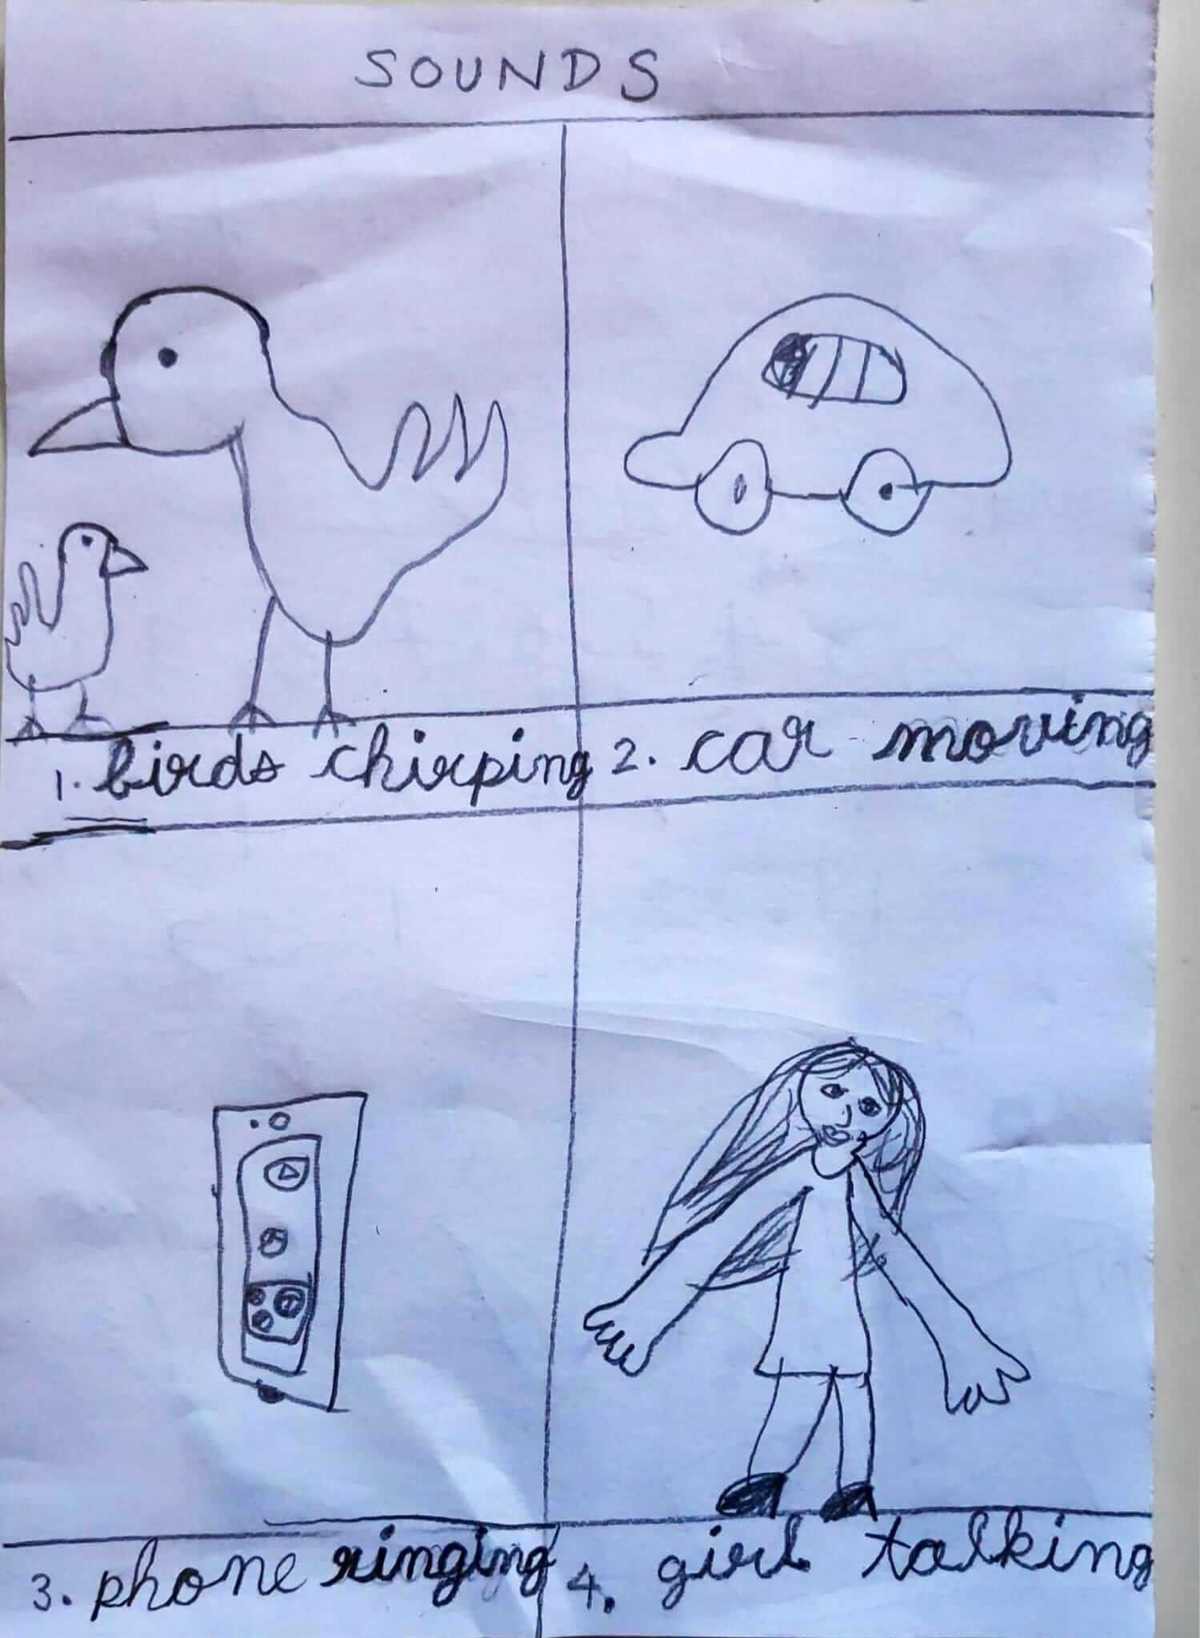 SOUNDS
1. birds chirping
2. car moving
3. phone ringing
4. girl talking